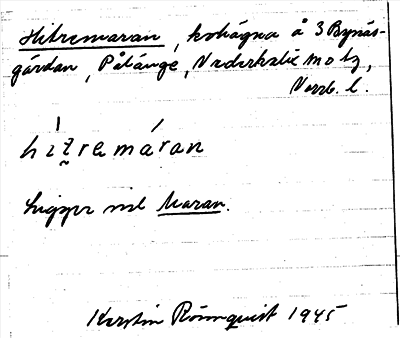 Hitremaran, kohägna å 3 Bynäs-
gårdan, Pålänge, Nederkalix motz,
Norrb. l.
hitremáran
Ligger vid Maran.
Kerstin Rönnquist 1945